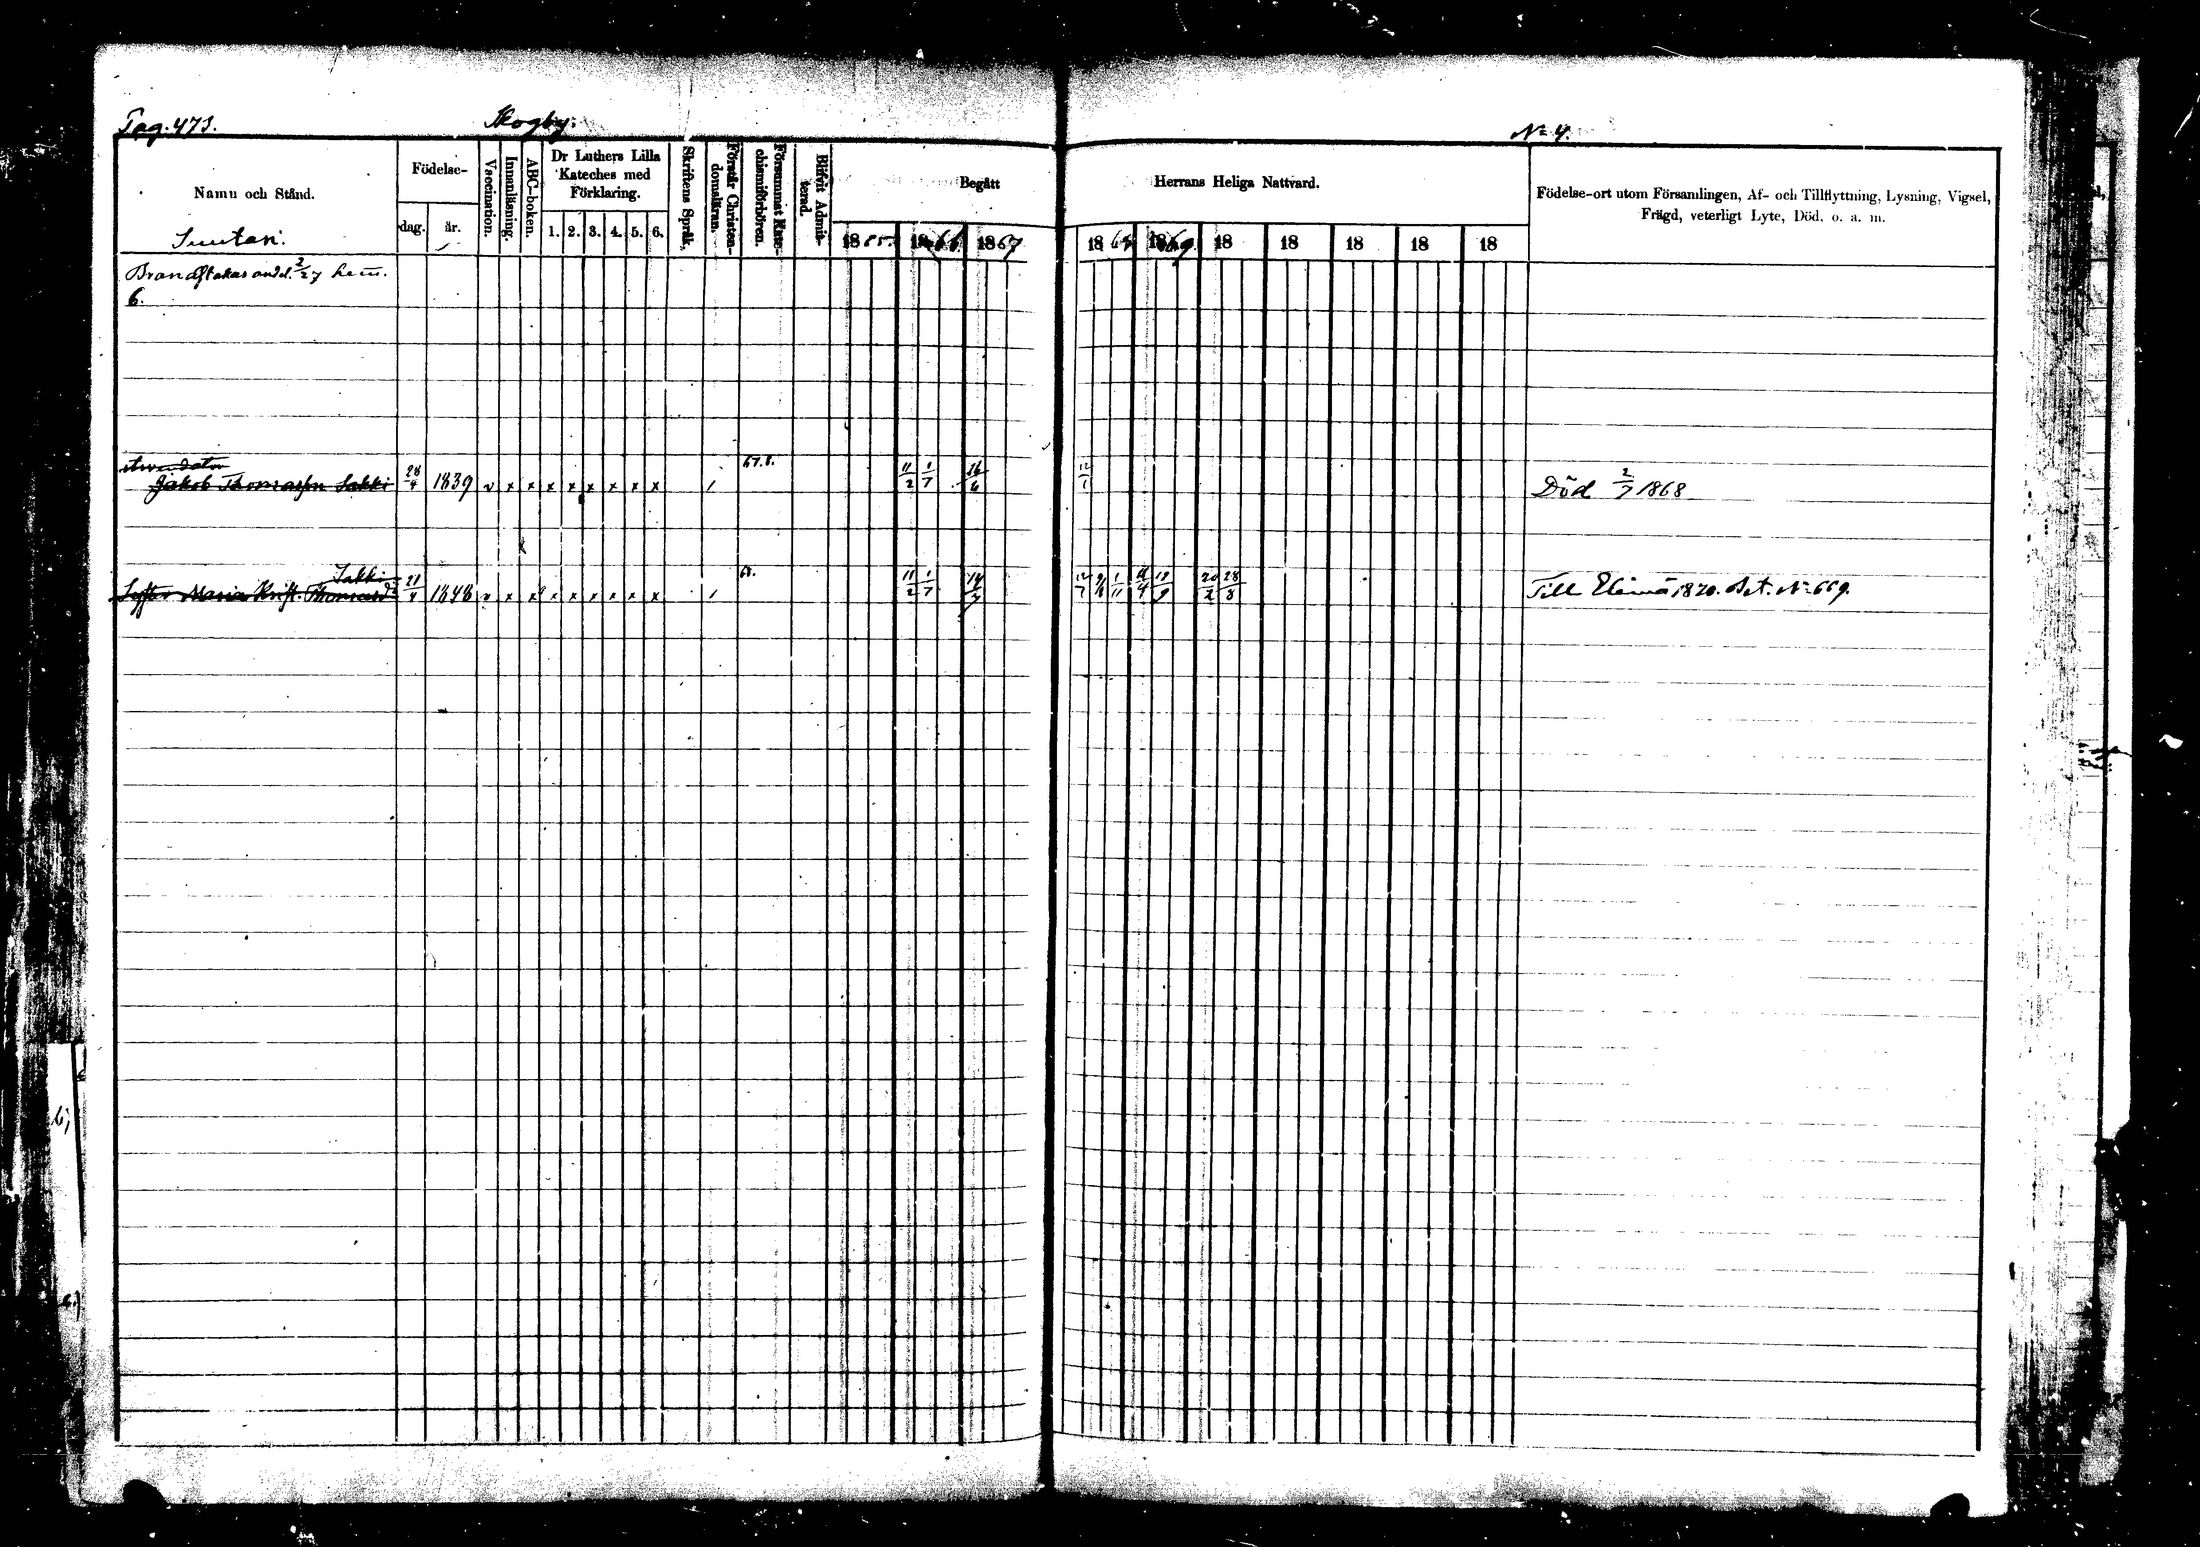 Pag. 473.
Skogby.
№ 4.
Namn och Stånd.
Suutari.
Födelse-
dag.
år.
Vaccination.
Innanläsning.
ABC-boken.
Dr Luthers Lilla
Kateches med
Förklaring.
1. 2. 3. 4. 5. 6.
Skriftens Språk.
Förstår Christen-
domsläran.
Försummat Kate-
chismiförhören.
Blifvit Admit-
terad.
Begått
Herrans Heliga Nattvard.
1865. 1866. 1867 1868 1869. 18 18 18 18 18
Födelse-ort utom Församlingen, Af- och Tillflyttning, Lysning, Vigsel,
Frägd, veterligt Lyte, Död. o. a. m.
Brandstakas andel. 2/27 hem.
6.
Arrendator
Jakob Thomasson Sakki 28/4 1839 v x x x x x x x x / 67. 11/2 1/7 16/6 12/1 Död 2/7 1868
Sakki
Syster Maria Krist. Thomasd. 21/4 1848 v x x x x x x x x / 68. 11/2 1/7 14/7 12/7 1/11 4/4 12/9 20/2 28/8 Till Elimä 1870. Bet. № 669.